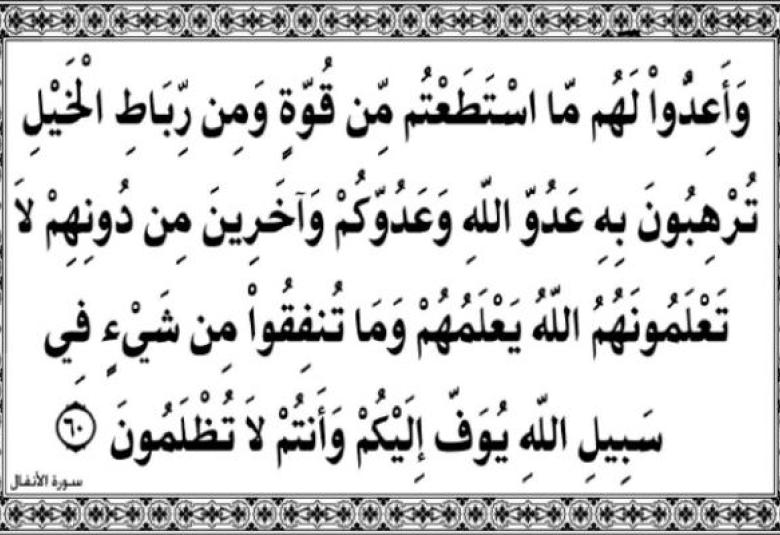 وَأَعِدُّواْ لَهُم مَّا اسْتَطَعْتُم مِّن قُوَّةٍ وَمِن رِّبَاطِ الْخَيْلِ
تُرْهِبُونَ بِهِ عَدُوَّ اللّهِ وَعَدُوَّكُمْ وَآخَرِينَ مِن دُونِهِمْ لاَ
تَعْلَمُونَهُمُ اللّهُ يَعْلَمُهُمْ وَمَا تُنفِقُواْ مِن شَيْءٍ فِي
سَبِيلِ اللّهِ يُوَفَّ إِلَيْكُمْ وَأَنتُمْ لاَ تُظْلَمُونَ ﴿٦٠﴾
سورة الأنفال